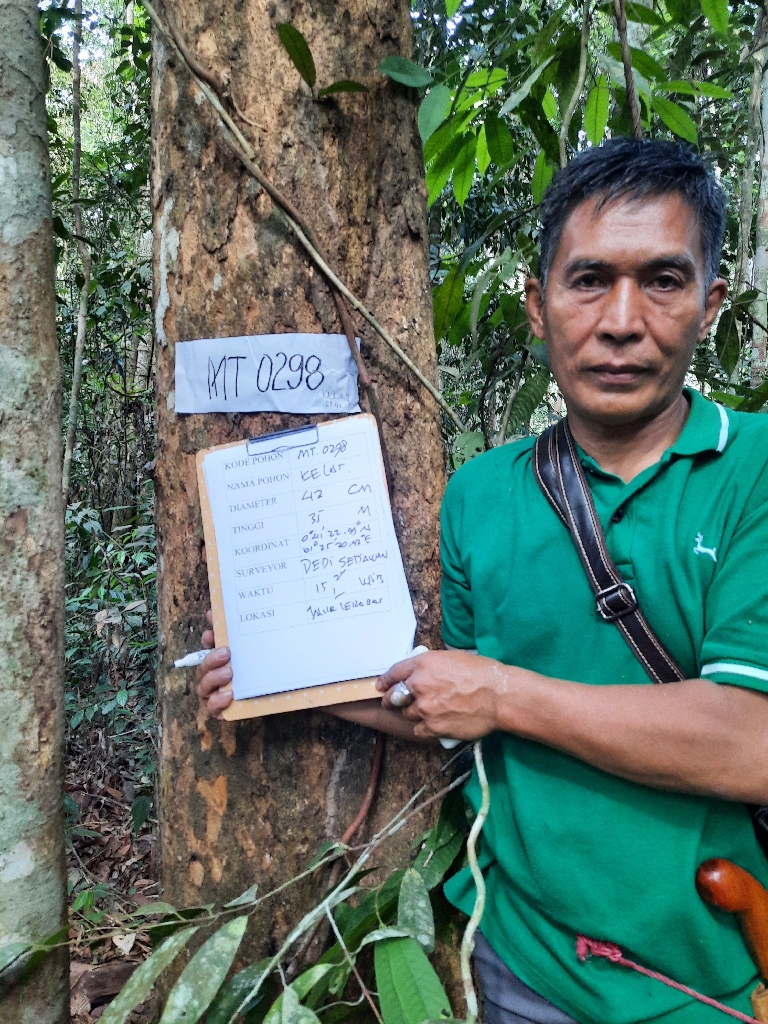 MT 0298
KODE POHON MT. 0298
NAMA POHON KELAT
DIAMETER 42 CM
TINGGI 35 M
KOORDINAT
SURVEYOR DEDI SETIAWAN
WAKTU WIB
LOKASI